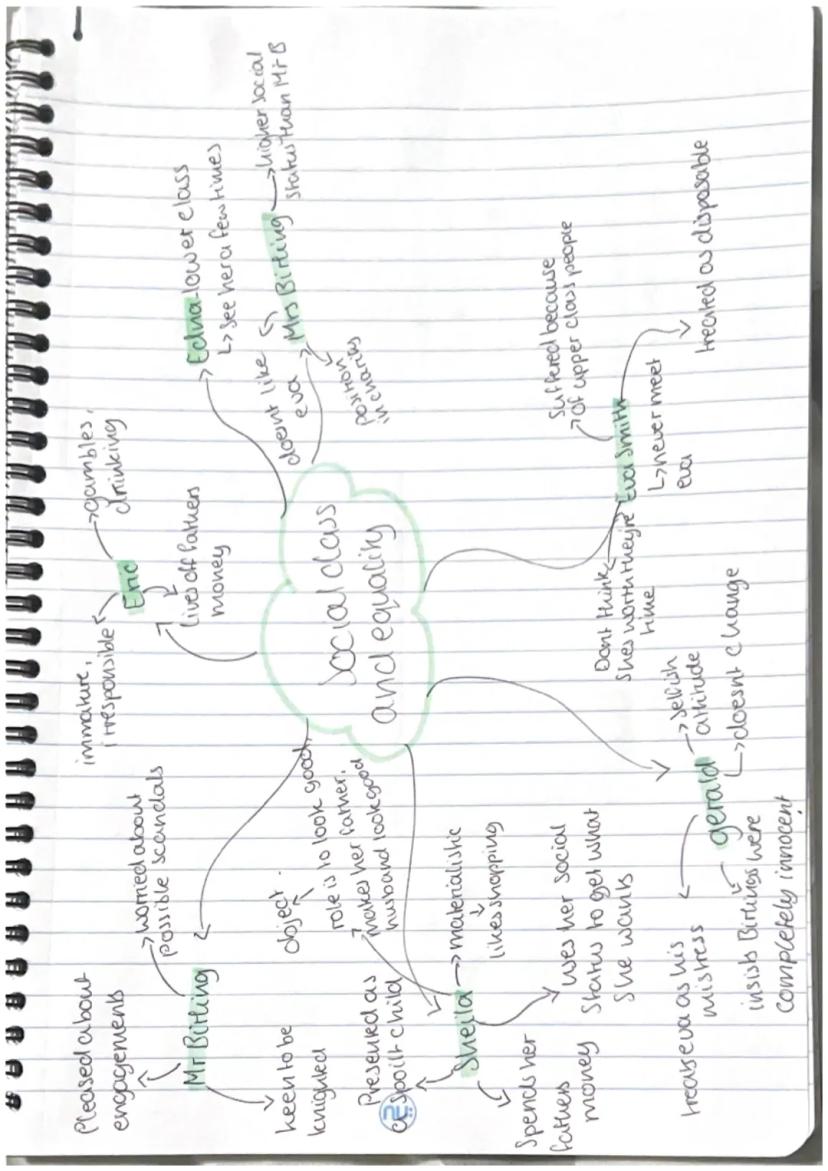 Social class
and equality
Mr Birling
Pleased about
engagements
worried about
possible scandals
keen to be
knighted
Eric
immature,
irresponsible
gambles,
drinking
lives off fathers
money
Edna-lower class
see her a few times
Mrs Birling
higher social
status than Mr B
doesnt like
eva
position
in charities
Sheila
Presented as
a spoilt child
object.
role is to look good,
makes her father,
husband look good
materialistic
likes shopping
uses her social
status to get what
she wants
Spends her
fathers
money
gerald
selfish
attitude
doesnt change
treats eva as his
mistress
insists Birlings were
completely innocent
Eva Smith
Suffered because
of upper class people
never meet
eva
treated as disposable
Dont think
shes worth they're
time